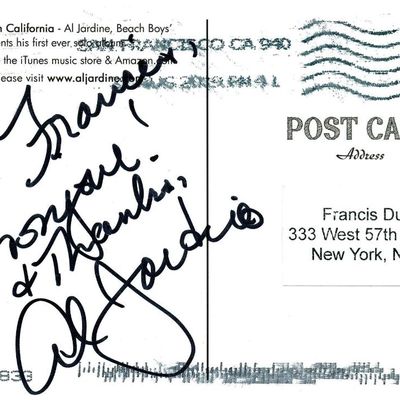 n California - Al Jardine, Beach Boys'
ents his first ever solo album
the iTunes music store & Amazon.com
lease visit www.aljardine.com
SAN FRANCISCO CA 940
AUG
Francis,
onjour
& Thanks,
Al Jardine
POST CA
Address
Francis Du
333 West 57th
New York, N